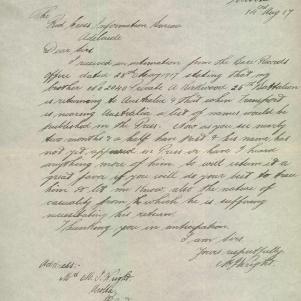 14th Aug 17
The
Red Cross Information Bureau
Adelaide
Dear Sirs
I received an intimation from the Base Records
Office dated 28th May 1917 stating that my
brother No 2048 Private A Kirkwood 28th Battalion
is returning to Australia & that when Transport
is nearing Australia a list of names would be
published in the Press. Now as you see nearly
two months & a half has past & his name has
not yet appeared in Press or have I heard
anything more of him. So will return it a
great favor if you will do your best to trace
him & let me know, also the nature of
casualty from which he is suffering
necessitating his return.
Thanking you in anticipation
I am Sirs
Yours respectfully
M J Wright.
Address:-
Mrs M. J. Wright.